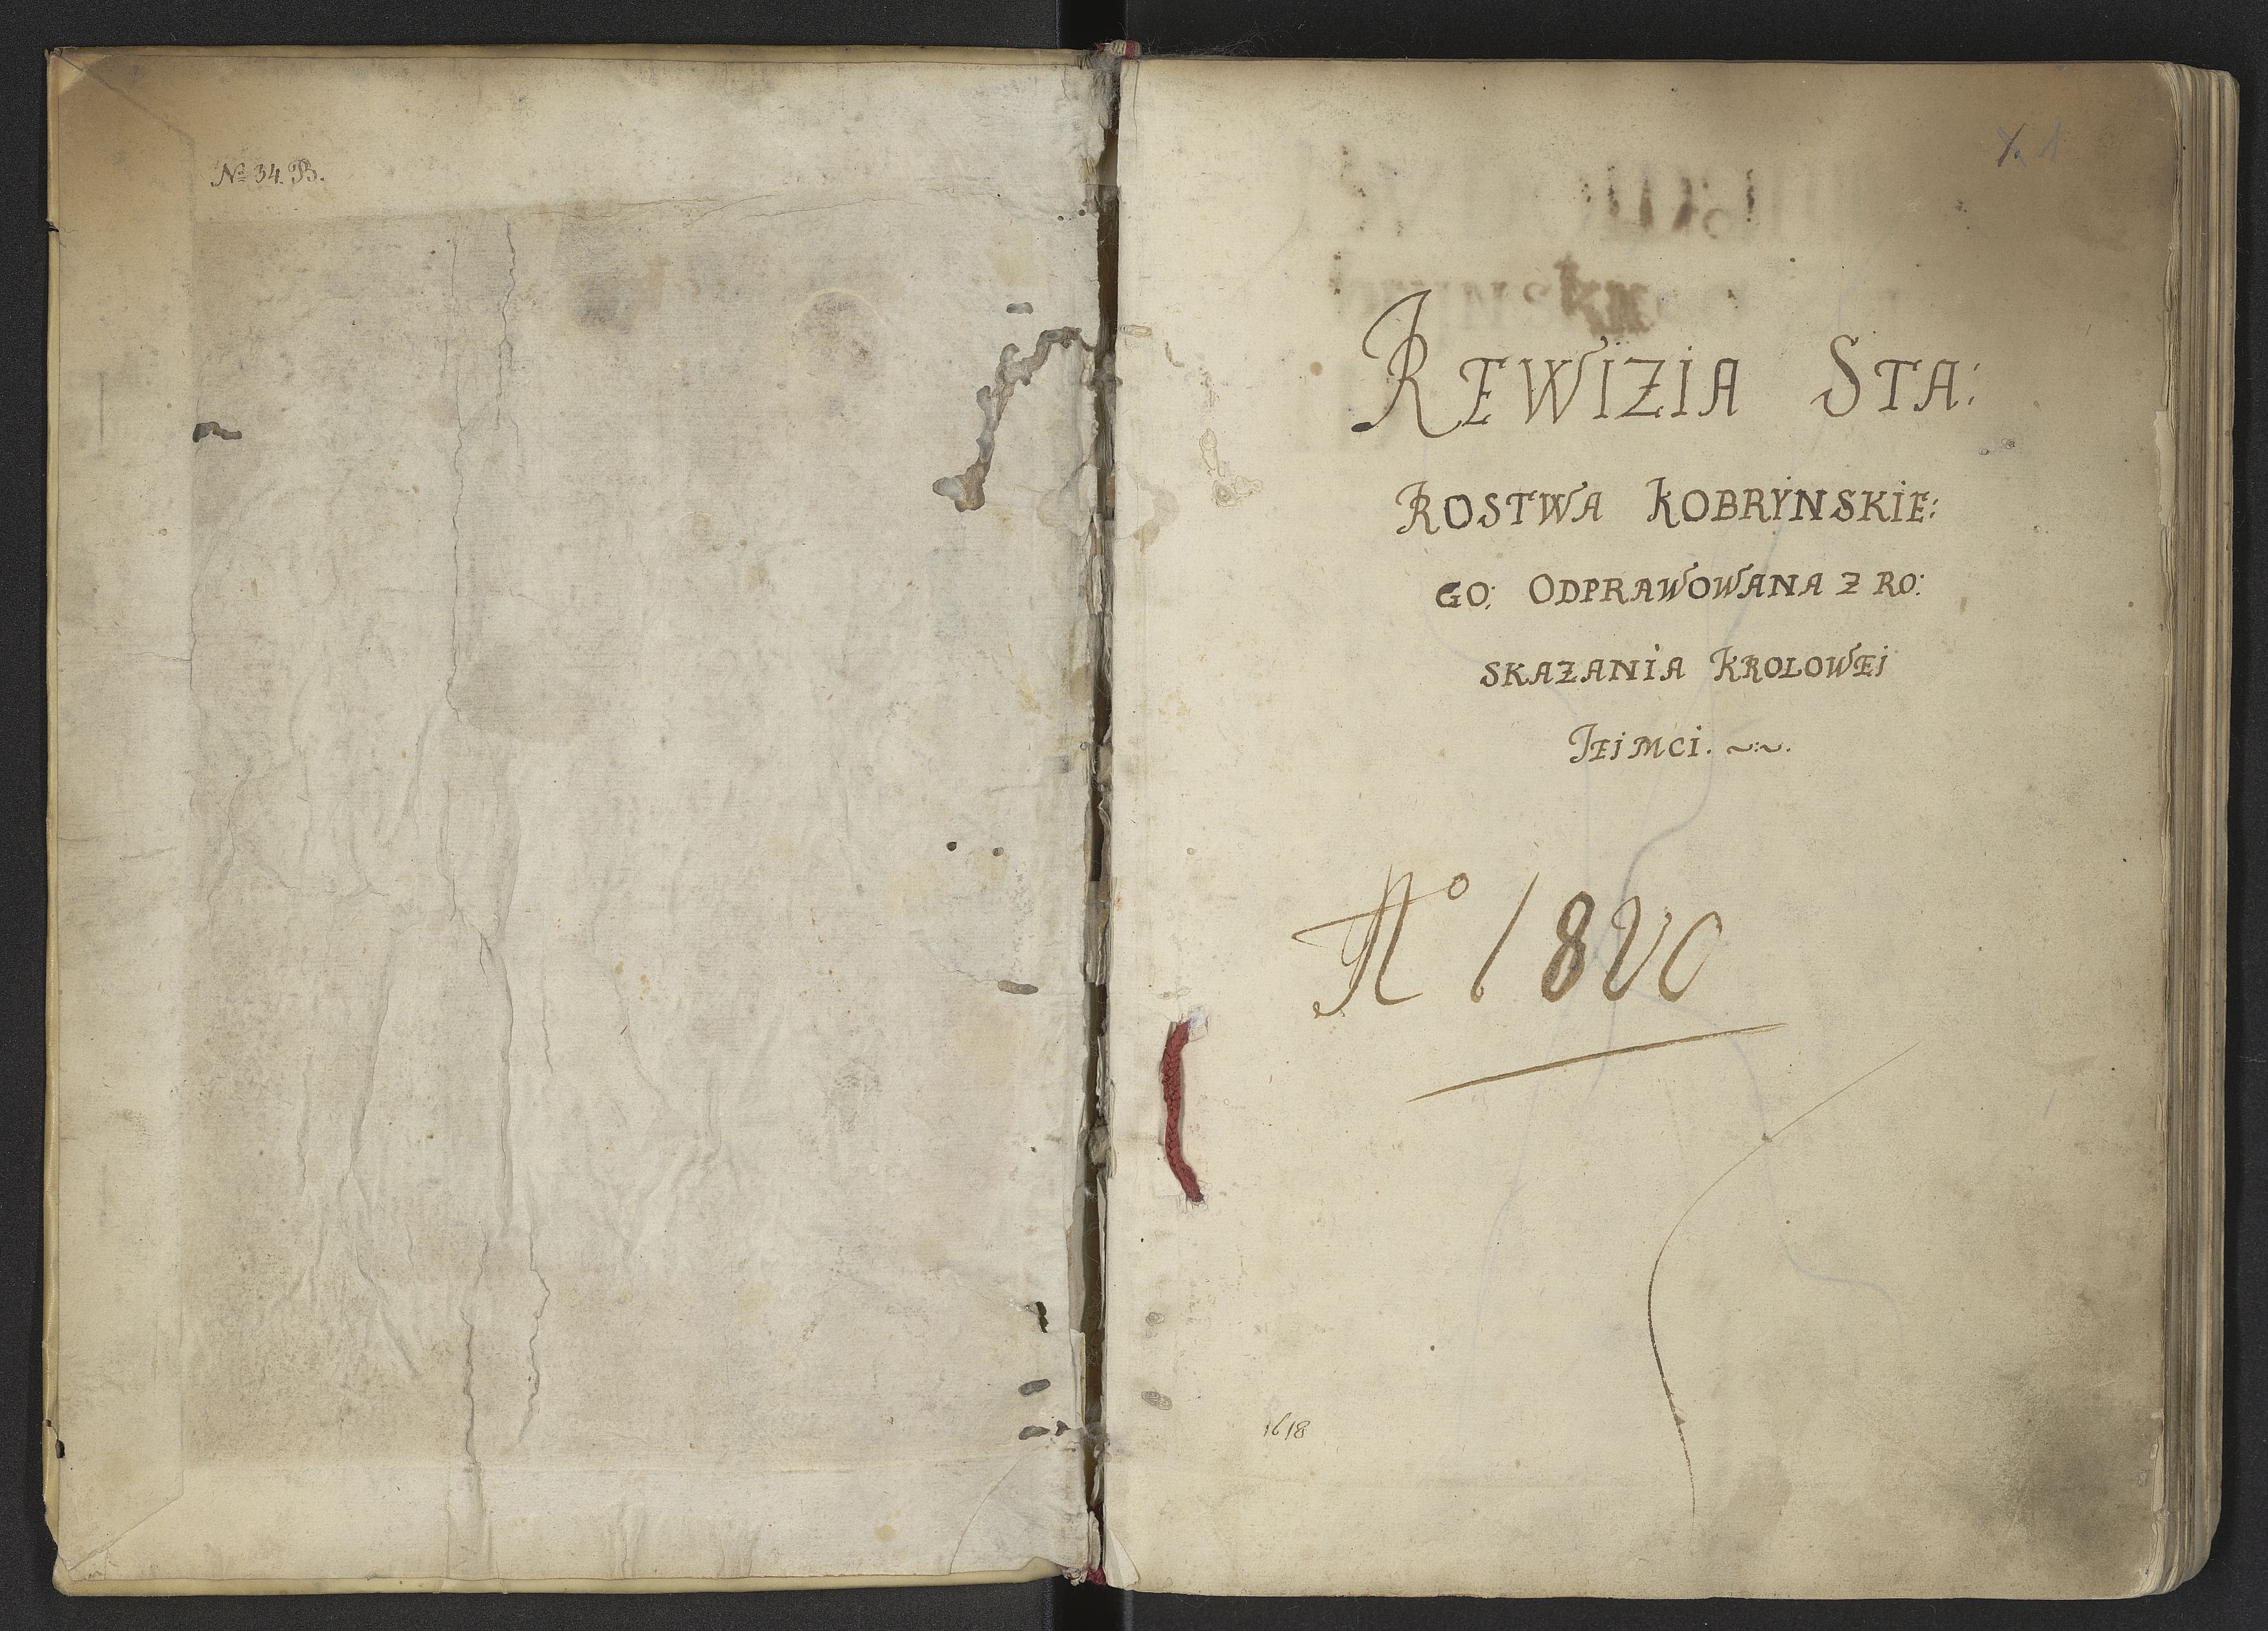 № 34. B.
1
REWIZIA STA:
ROSTWA KOBRYNSKIE:
GO: ODPRAWOWANA Z RO:
SKAZANIA KROLOWEI
JEIMCI.
No 1820
1618